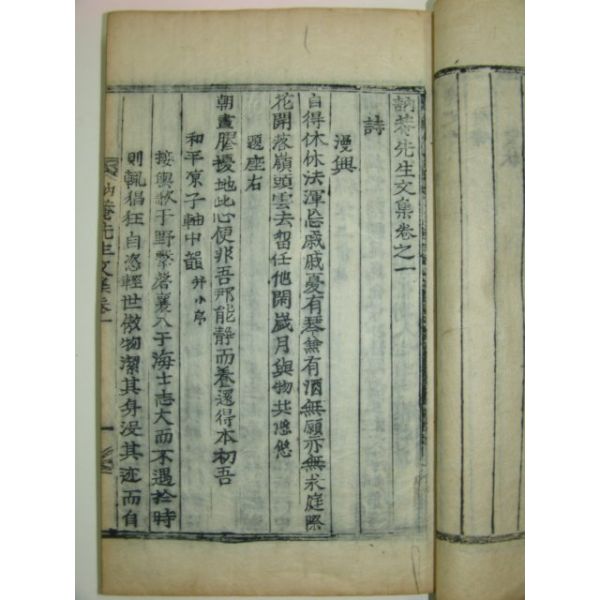 訥菴先生文集卷之一
詩
漫興
自得休休法渾忘戚戚憂有琴兼有酒無願亦無求庭際
花開落嶺頭雲去留任他閑歲月與物共悠悠
題座右
朝晝膠擾地此心便非吾那能靜而養還得本初吾
和平凉子軸中韻 幷小序
接輿歌于野擊磬襄入于海士志大而不遇於時
則輒猖狂自恣輕世傲物潔其身沒其迹而自
菴先生文集卷一 一